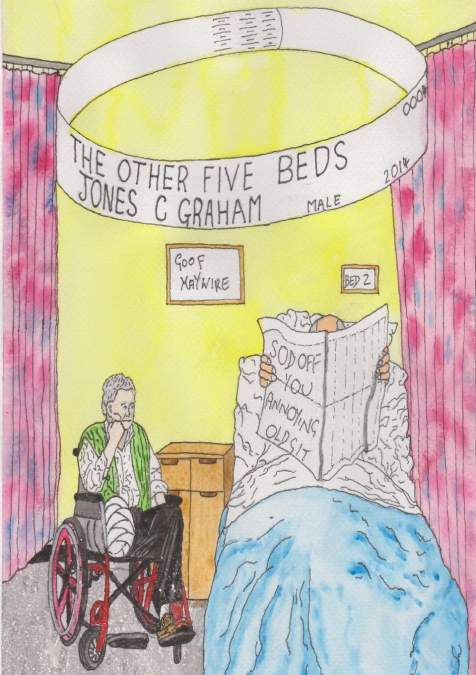 0004
THE OTHER FIVE BEDS
JONES C GRAHAM MALE 2014
GOOF
HAYWIRE
BED 2
SOD OFF
YOU
ANNOYING
OLD GIT